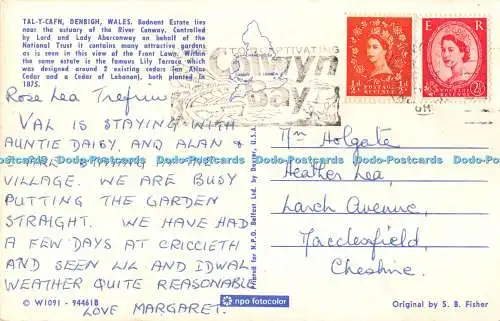 TAL-Y-CAFN, DENBIGH, WALES. Bodnant Estate lies
near the estuary of the River Conway. Controlled
by Lord and Lady Aberconway on behalf of the
National Trust it contains many attractive gardens
as is seen in this view of the Front Lawn. Within
the same estate is the famous Lily Terrace which
was designed around 2 existing cedars (an Atlas
Cedar and a Cedar of Lebanon), both planted in
1875.
CAPTIVATING
Colwyn
Bay
E R
POSTAGE
REVENUE
½D
2½D
Rose Lea Trefriw
VAL IS STAYING WITH
AUNTIE DAISY, AND ALAN &
CARL STAYING IN THE
VILLAGE. WE ARE BUSY
PUTTING THE GARDEN
STRAIGHT. WE HAVE HAD
A FEW DAYS AT CRICCIETH
AND SEEN LIL AND IDWAL
WEATHER QUITE REASONABLE
LOVE MARGARET.
Holgate
Heather Lea,
Larch Avenue,
Macclesfield,
Cheshire.
Printed for N.P.O. Belfast Ltd. by Dexter, U.S.A.
Dodo-Postcards Dodo-Postcards Dodo-Postcards Dodo-Postcards Dodo-Postcards
© W1091 - 94461B
npo fotocolor
Original by S. B. Fisher